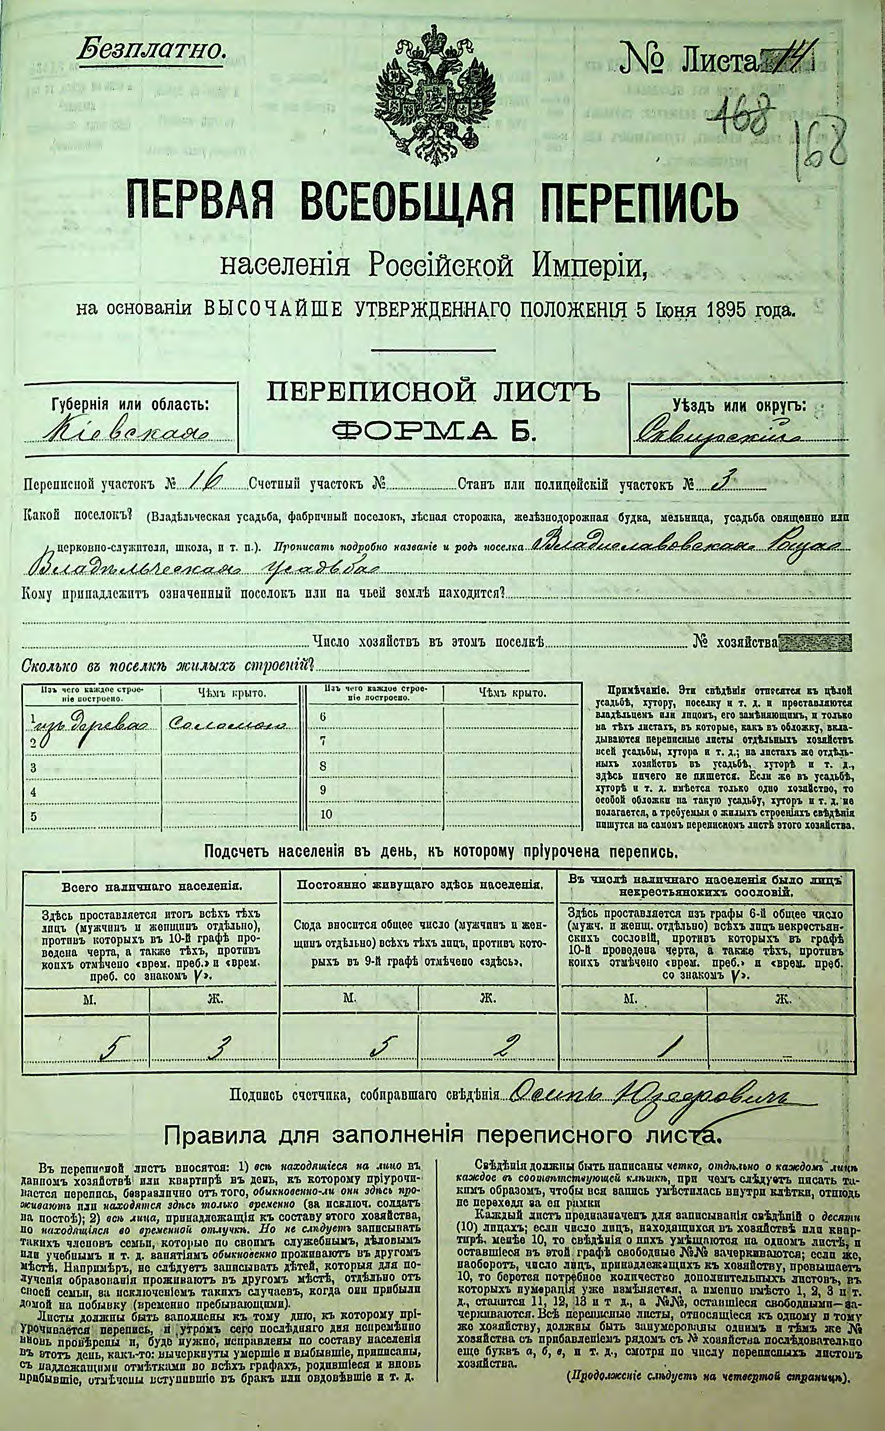 Безплатно.
№ Листа 14
168
168
ПЕРВАЯ ВСЕОБЩАЯ ПЕРЕПИСЬ
населенія Россійской Имперіи,
на основаніи ВЫСОЧАЙШЕ УТВЕРЖДЕННАГО ПОЛОЖЕНІЯ 5 Іюня 1895 года.
Губернія или область:
Кіевская
ПЕРЕПИСНОЙ ЛИСТЪ
ФОРМА Б.
Уѣздъ или округъ:
Сквирскій
Переписной участокъ № 16 Счетный участокъ № Станъ или полицейскій участокъ № 3
Какой поселокъ? (Владѣльческая усадьба, фабричный поселокъ, лѣсная сторожка, желѣзнодорожная будка, мельница, усадьба священно или
церковно-служителя, школа, и т. п.). Прописать подробно названіе и родъ поселка Владиславовская Роща
Владѣльческая усадьба
Кому принадлежитъ означенный поселокъ или на чьей землѣ находится?
Число хозяйствъ въ этомъ поселкѣ № хозяйства
Сколько въ поселкѣ жилыхъ строеній?
Изъ чего каждое строе-
ніе построено.
Чѣмъ крыто.
Изъ чего каждое строе-
ніе построено.
Чѣмъ крыто.
1 изъ дерева соломою 6
2 7
3 8
4 9
5 10
Примѣчаніе. Эти свѣдѣнія относятся къ цѣлой
усадьбѣ, хутору, поселку и т. д. и проставляются
владѣльцемъ или лицомъ, его замѣняющимъ, и только
на тѣхъ листахъ, въ которые, какъ въ обложку, вкла-
дываются переписные листы отдѣльныхъ хозяйствъ
всей усадьбы, хутора и т. д.; на листахъ же отдѣль-
ныхъ хозяйствъ въ усадьбѣ, хуторѣ и т. д.,
здѣсь ничего не пишется. Если же въ усадьбѣ,
хуторѣ и т. д. имѣется только одно хозяйство, то
особой обложки на такую усадьбу, хуторъ и т. д. не
полагается, а требуемыя о жилыхъ строеніяхъ свѣдѣнія
пишутся на самомъ переписномъ листѣ этого хозяйства.
Подсчетъ населенія въ день, къ которому пріурочена перепись.
Всего наличнаго населенія.
Здѣсь проставляется итогъ всѣхъ тѣхъ
лицъ (мужчинъ и женщинъ отдѣльно),
противъ которыхъ въ 10-й графѣ про-
ведена черта, а также тѣхъ, противъ
коихъ отмѣчено «врем. преб.» и «врем.
преб. со знакомъ V».
М. Ж.
5 3
Постоянно живущаго здѣсь населенія.
Сюда вносится общее число (мужчинъ и жен-
щинъ отдѣльно) всѣхъ тѣхъ лицъ, противъ кото-
рыхъ въ 9-й графѣ отмѣчено «здѣсь».
М. Ж.
5 2
Въ числѣ наличнаго населенія было лицъ
некрестьянскихъ сословій.
Здѣсь проставляется изъ графы 6-й общее число
(мужч. и женщ. отдѣльно) всѣхъ лицъ некрестьян-
скихъ сословій, противъ которыхъ въ графѣ
10-й проведена черта, а также тѣхъ, противъ
коихъ отмѣчено «врем. преб.» и «врем. преб.
со знакомъ V».
М. Ж.
1 –
Подпись счетчика, собиравшаго свѣдѣнія Осипъ
Правила для заполненія переписного листа.
Въ переписной листъ вносятся: 1) всѣ находящіеся на лицо въ
данномъ хозяйствѣ или квартирѣ въ день, къ которому пріурочи-
вается перепись, безразлично отъ того, обыкновенно-ли они здѣсь про-
живаютъ или находятся здѣсь только временно (за исключ. солдатъ
на постоѣ); 2) всѣ лица, принадлежащія къ составу этого хозяйства,
но находящіяся во временной отлучкѣ. Но не слѣдуетъ записывать
такихъ членовъ семьи, которые по своимъ служебнымъ, дѣловымъ
или учебнымъ и т. д. занятіямъ обыкновенно проживаютъ въ другомъ
мѣстѣ. Напримѣръ, не слѣдуетъ записывать дѣтей, которыя для по-
лученія образованія проживаютъ въ другомъ мѣстѣ, отдѣльно отъ
своей семьи, за исключеніемъ такихъ случаевъ, когда они прибыли
домой на побывку (временно пребывающими).
Листы должны быть заполнены къ тому дню, къ которому прі-
урочивается перепись, и утромъ сего послѣдняго дня непремѣнно
вновь провѣрены и, буде нужно, исправлены по составу населенія
въ этотъ день, какъ-то: вычеркнуты умершіе и выбывшіе, приписаны,
съ надлежащими отмѣтками во всѣхъ графахъ, родившіеся и вновь
прибывшіе, отмѣчены вступившіе въ бракъ или овдовѣвшіе и т. д.
Свѣдѣнія должны быть написаны четко, отдѣльно о каждомъ лицѣ
каждое въ соотвѣтствующей клѣткѣ, при чемъ слѣдуетъ писать та-
кимъ образомъ, чтобы вся запись умѣстилась внутри клѣтки, отнюдь
не переходя за ея рамки
Каждый листъ предназначенъ для записыванія свѣдѣній о десяти
(10) лицахъ; если число лицъ, находящихся въ хозяйствѣ или квар-
тирѣ, менѣе 10, то свѣдѣнія о нихъ умѣщаются на одномъ листѣ, и
оставшіеся въ этой графѣ свободные №№ зачеркиваются; если же,
наоборотъ, число лицъ, принадлежащихъ къ хозяйству, превышаетъ
10, то берется потребное количество дополнительныхъ листовъ, въ
которыхъ нумерація уже измѣняется, а именно вмѣсто 1, 2, 3 и т.
д., ставится 11, 12, 13 и т д., а №№, оставшіеся свободными—за-
черкиваются. Всѣ переписные листы, относящіеся къ одному и тому
же хозяйству, должны быть занумерованы однимъ и тѣмъ же №
хозяйства съ прибавленіемъ рядомъ съ № хозяйства послѣдовательно
еще буквъ а, б, в, и т. д., смотря по числу переписныхъ листовъ
хозяйства.
(Продолженіе слѣдуетъ на четвертой страницѣ).